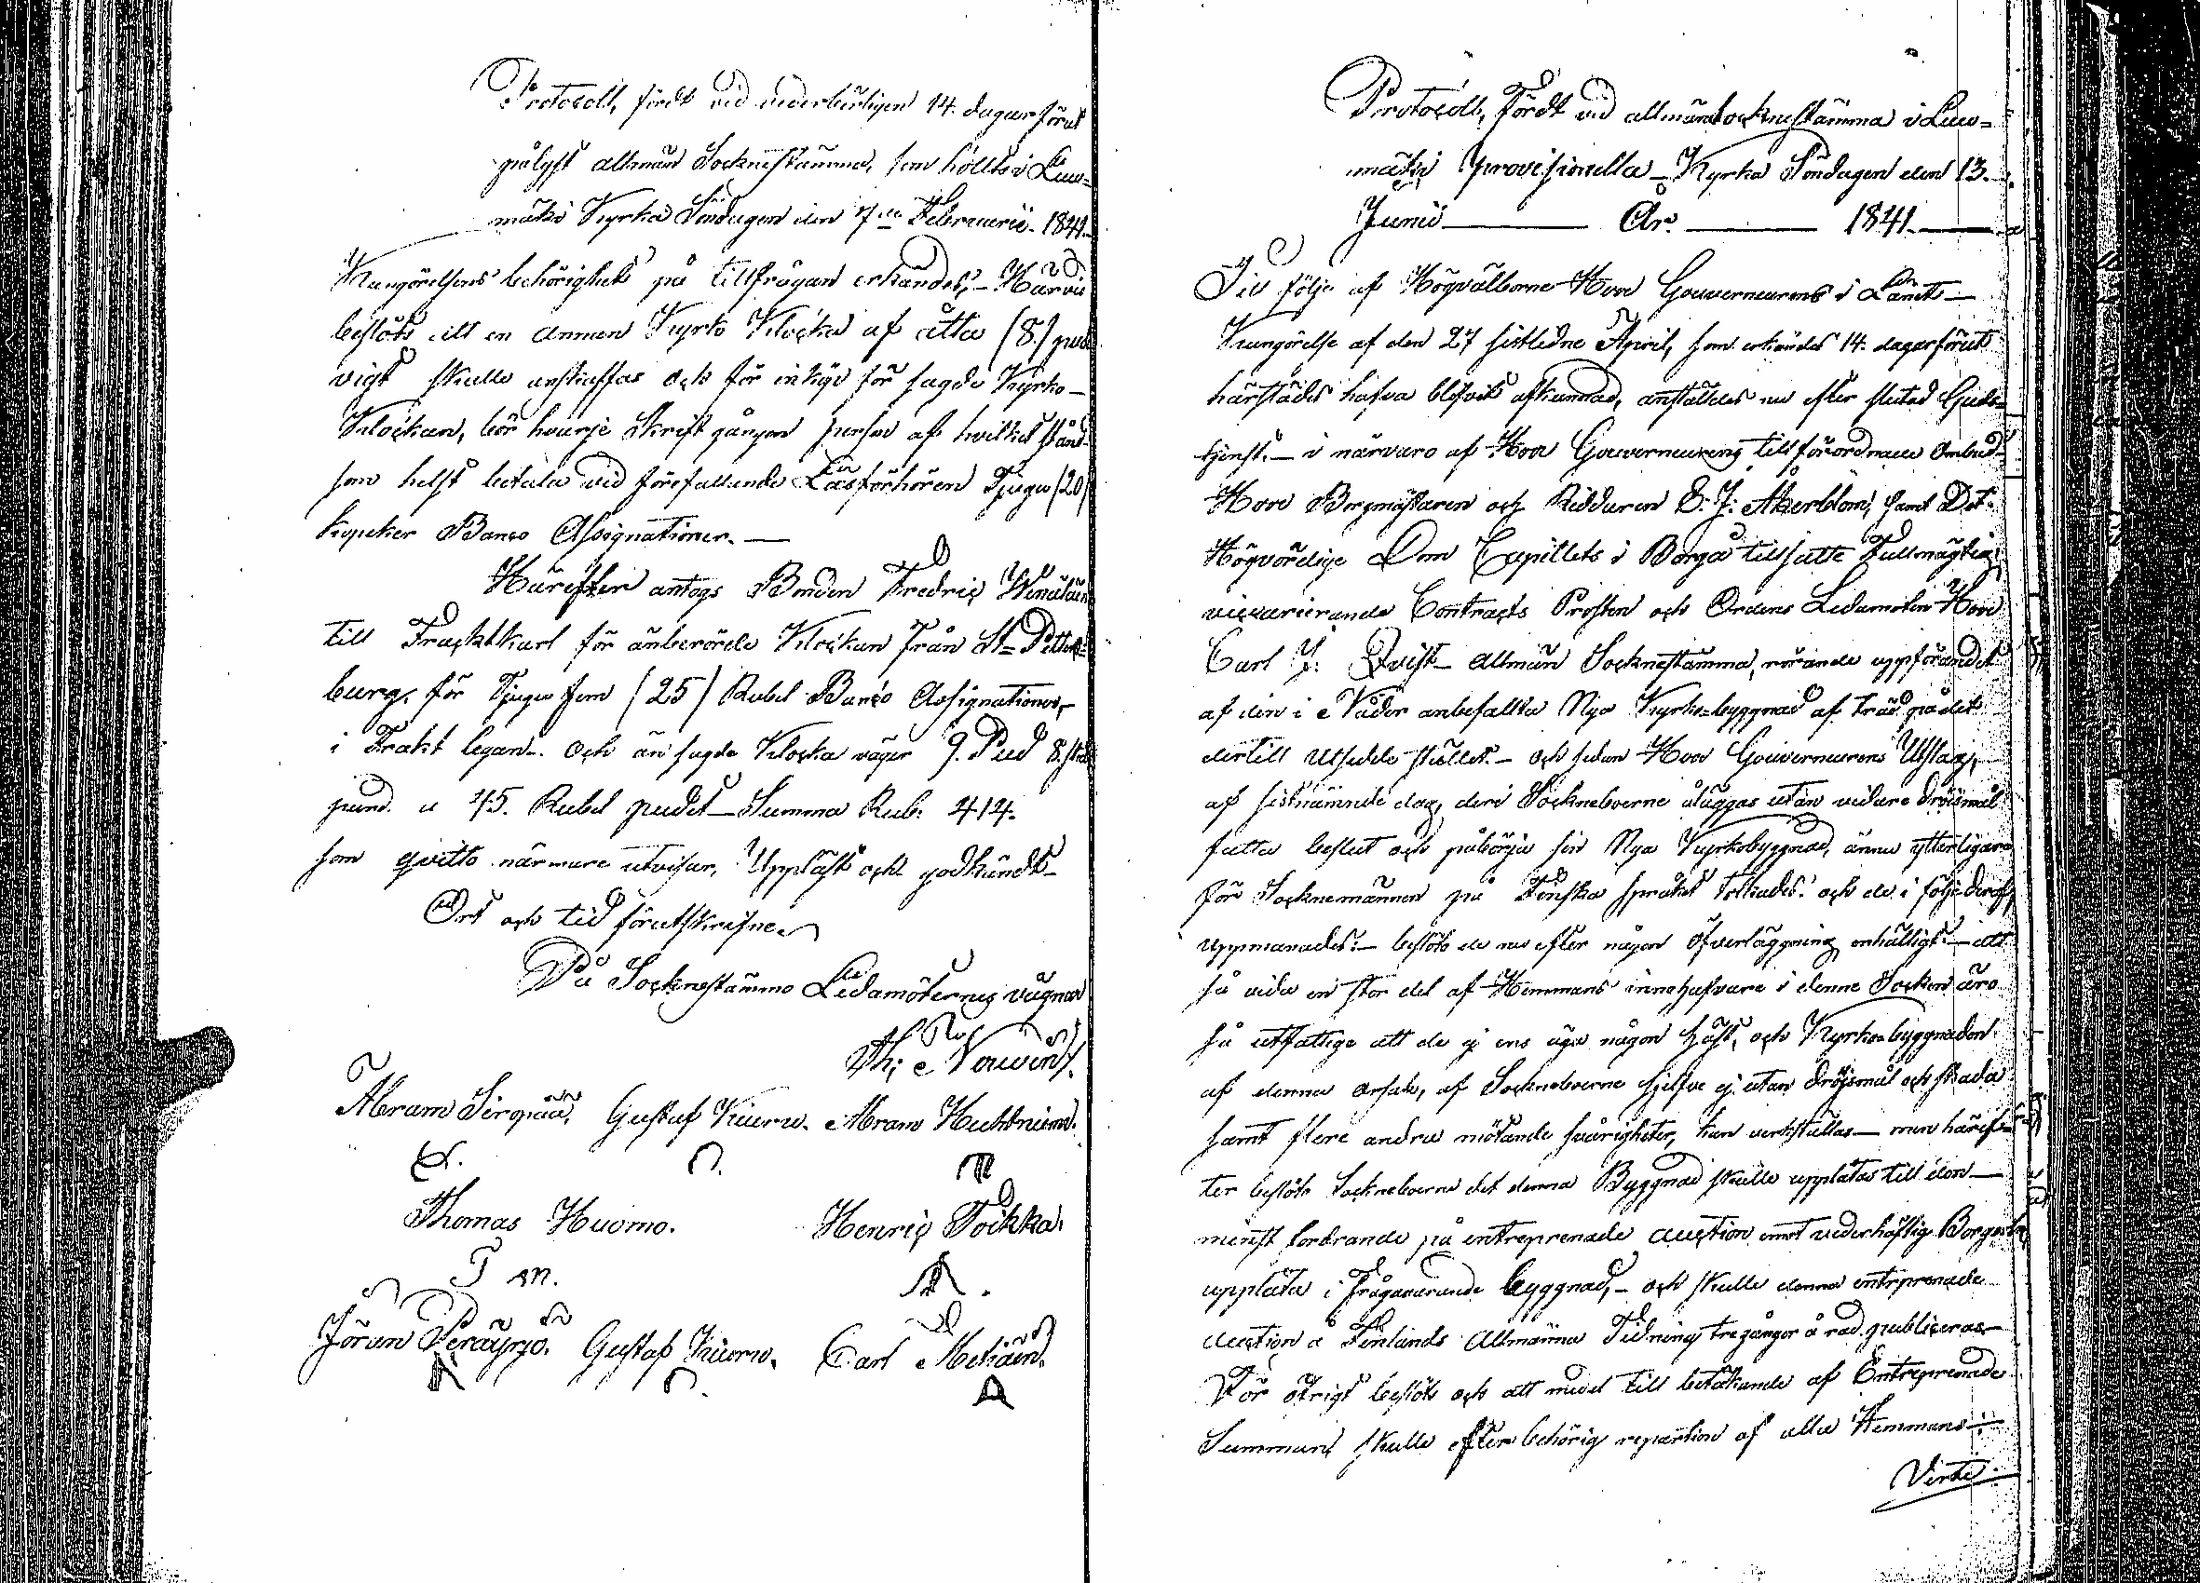 Protocoll, fördt vid vederbörligen 14. dagar förut
pålyst allmän Socknestämma, som hölls i Luu-
mäki Kyrka Söndagen den 7de Februarii 1841.
Kungörelsens behörighet på tillfrågan erkändes; - Härvid
beslöts att en annan Kyrko Klocka af åtta (8) pud
vigt skulle anskaffas och för inköp för sagde Kyrko-
Klockan, bör hvarje Skriftgången person af hvilket stånd
som helst betala vid förefallande Läsförhören Tjugu (20)
kopeker Banco Assignationer. —
Härefter antogs Bonden Fredric
till Fracktkarl för ånberörde Klockan från St. Petters-
burg, för Tjugu fem (25) Rubel Banco Assignationer,
i Frakt legan. och än sagde Klocka väger 9. Pud 8. skål
pund. a 45. Rubel pudet — Summa Rub: 414.
som qvitto närmare utvisar, Uppläst och godkändt —
Ort och tid förutskrifne
På Sockenstämmo Ledamöternes vägnar
Abram Gustaf Kiuru. Abram
Thomas Huomo. Henric Toikka.
T m.
Jöran Gustaf Kiuru. Carl
Protocoll, fördt vid allmän socknestämma i Luu-
mäki provisionella Kyrka Söndagen den 13.
Junii — År — 1841. —
I följe af Högvälborne Herr Gouverneurens i Länet —
Kungörelse af den 27 sistledne April, som erkändes 14. dagar förut
härstädes hafva blifvit afkunnad, anställdes nu efter slutad Guds-
tjenst. — i närvaro af Herr Gouverneurens tillförordnade Ombud
Herr Borgmästaren och Riddaren E. J. Åkerblom, samt Det
Högvördige Dom Capitlets i Borgå tillsatte Fullmägtig
viccarierande Contracts Prosten och Ordens Ledamoten Herr
Carl J. Qvist — allmän Sockenstämma, rörande uppförandet
af den i Nåder anbefallta Nya Kyrko-byggnad af träd på det
dertill utsedde stället. — och sedan Herr Gouverneurens Utslag,
af sistnämnde dag, deri Sockneboerne åläggas utan vidare dröjsmål
fatta beslut och påbörja sin Nya Kyrkobyggnad, ännu ytterligare
för Socknemännen på Finska språket tolkades: och de i följe deraf,
uppmanades: — beslöto de nu efter någon öfverläggning enhälligt: — att
så vida en stor del af Hemmans innehafvare i denne Socken äro
så utfattige att de ej ens äga någon häst, och Kyrko-byggnaden
af denna orsak, af Sockneboerne sjelfve ej utan dröjsmål och skada
samt flere andra mötande svårigheter, kan verkställas — men häref-
ter beslöto Sockneboerne det denna Byggnad skulle upplåtas till den —
minst fordrande på entreprenade auction emot vederhäftig Borgen
upplåta i frågavarande byggnad, — och skulle denna entreprenade
auction i Finlands Allmänna Tidning tre gånger å rad publiceras —
För öfrigt beslöts och att medel till betalande af Entreprenade
Summan, skulle efter behörig repartion af alla Hemmans —
Verte.